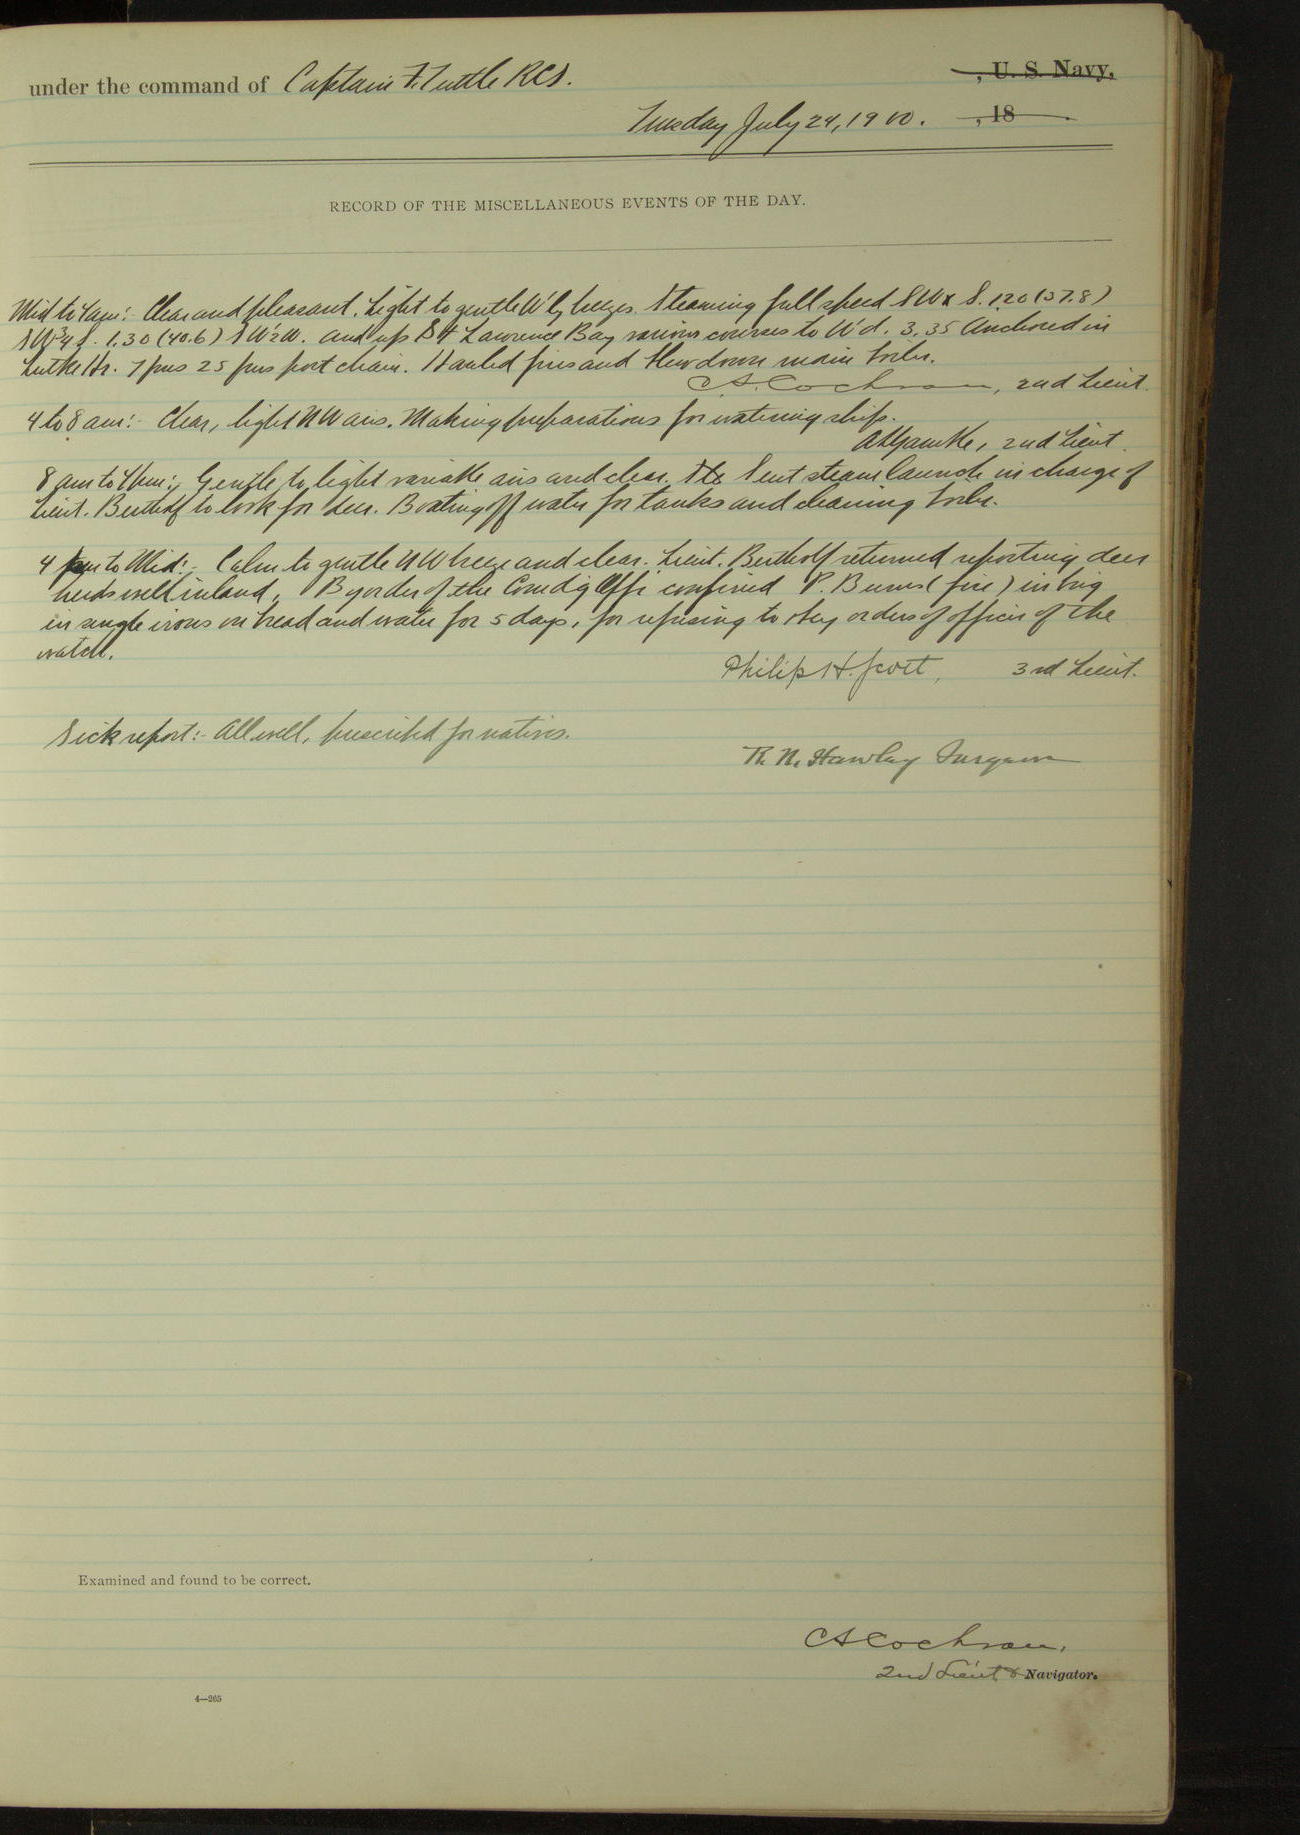 under the command of Captain F. Tuttle RCS. , U. S. Navy,
Tuesday July 24, 1900. , 18 .
RECORD OF THE MISCELLANEOUS EVENTS OF THE DAY.
Mid to 4 am:- Clear and pleasant. Light to gentle W'ly breezes. Steaming full speed SWx S. 1.20 (37.8)
SW¾S. 1.30 (40.6) SW½W. and up St Lawrence Bay various courses to W'd. 3.35 Anchored in
Lutke Hr. 7 fms 25 fms port chain. Hauled fires and blew down main boiler.
C.S. Cochran, 2nd Lieut.
4 to 8 am:- Clear, light NW airs. Making preparations for watering ship.
2nd Lieut.
8 am to 4 pm:- Gentle to light variable airs and clear. Sent steam launch in charge of
Lieut. Bertholf to look for deer. Boating off water for tanks and cleaning boiler.
4 pm to Mid:- Calm to gentle NW breeze and clear. Lieut. Bertholf returned reporting deer
herds well inland. By order of the Comd'g Offr confined P. Burns (fire) in brig
in single irons on bread and water for 5 days, for refusing to obey orders of officer of the
watch.
Philip H. Scott, 3rd Lieut.
Sick report:- All well, prescribed for natives.
R. N. Hawley Surgeon
Examined and found to be correct.
C S Cochran,
2nd Lieut & Navigator.
4—265